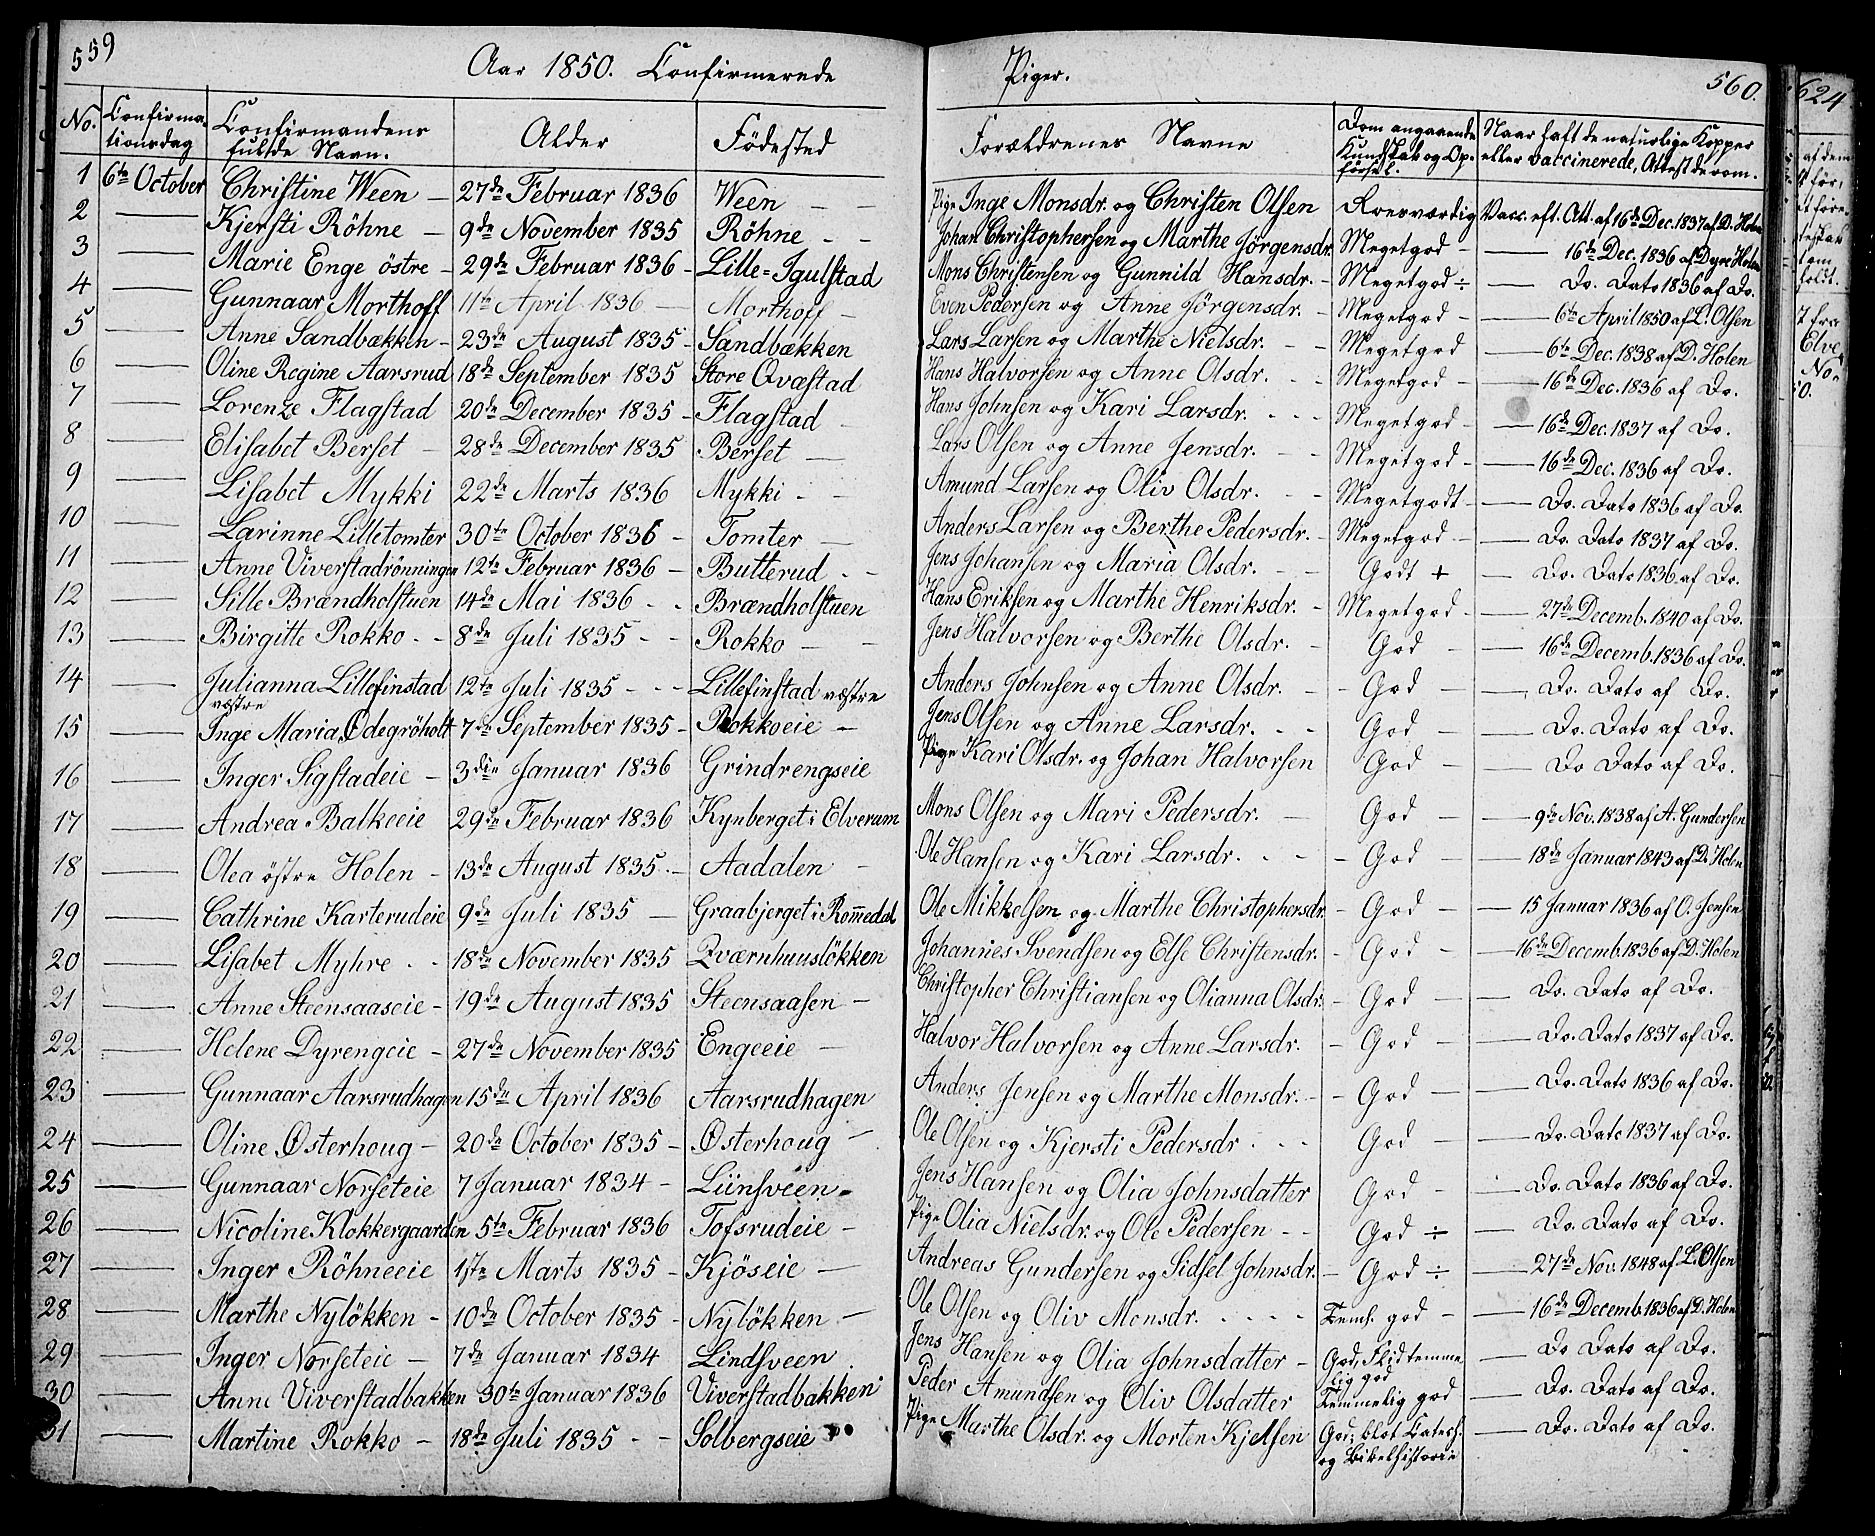 559
Aar 1850. Confirmerede Piger. 560.
No. Confirmationsdag Confirmandens fulde Navn. Alder Födested Forældrenes Navne Dom angaaende Kundskab og Opförsel. Naar haft de naturlige Kopper eller vaccinerede, Attest derom.
1 6te October Christine Ween — 27de Februar 1836 Ween — — Pige Inge Monsdr. og Christen Olsen Roesværdig Vacc. eft. Att. af 16de Dec. 1837 af D. Holen
2 — Kjersti Röhne — 9de November 1835 Röhne - - Johan Christophersen og Marthe Jörgensdr. Megetgod — 16de Dec. 1836 af Dyre Holen
3 — Marie Enge östre - 29de Februar 1836 - Lille=Igulstad Mons Christensen og Gunnild Hansdr. - Megetgod ÷ — Do. Dato 1836 af Do.
4 — Gunnaar Morthoff 11te April 1836 — Morthoff — Even Pedersen og Anne Jörgensdr. - Megetgod - — 6te April 1850 af L. Olsen
5 — Anne Sandbækken - 23de August 1835 - Sandbækken Lars Larsen og Marthe Nielsdr. - - Megetgod — 6te Dec. 1838 af D. Holen
6 — Oline Regine Aarsrud 18de September 1835 Store Qvæstad Hans Halvorsen og Anne Olsdr. - - Megetgod - — 16de Dec. 1836 af Do.
7 — Lorenze Flagstad 20de December 1835 - Flagstad — Hans Johnsen og Kari Larsdr. - - - Megetgod - — 16de Dec. 1837 af Do.
8 — Elisabet Berset — 28de December 1835 Berset — Lars Olsen og Anne Jensdr. - - Megetgod - — 16de Dec. 1836 af Do.
9 — Lisabet Mykki 22de Marts 1836 Mykki - - Amund Larsen og Oliv Olsdr. - - Megetgodt - — Do. Dato 1836 af Do.
10 — Larinne Lilletomter 30te October 1836 - Tomter — Anders Larsen og Berthe Pedersdr. - Megetgod - — Do. Dato 1837 af Do.
11 — Anne Viverstadrönningen 12te Februar 1836 - Butterud - - Jens Johansen og Maria Olsdr. - - Godt + — Do. Dato 1836 af Do.
12 — Sille Brændholstuen 14de Mai 1836 - - Brændholstuen Hans Eriksen og Marthe Henriksdr. - Megetgod - — 27de Decemb. 1840 af Do.
13 — Birgitte Rokko - - 8de Juli 1835 - - Rokko — — Jens Halvorsen og Berthe Olsdr. - God — 16de Decemb. 1836 af Do.
14 — Julianna Lillefinstad væstre 12te Juli 1835 - - - Lillefinstad væstre Anders Johnsen og Anne Olsdr. - - God - — Do. Dato af Do.
15 — Inge Maria Ödegröholt 7de September 1835 - Rokkoeie — Jens Olsen og Anne Larsdr. - - God - — Do. Dato af Do.
16 — Inger Sigstadeie - 3die Januar 1836 Grindrengseie Pige Kari Olsdr. og Johan Halvorsen God — — Do Dato af Do.
17 — Andrea Balkeeie 29de Februar 1836 Kynberget i Elverum Mons Olsen og Mari Pedersdr. — God — 9de Nov. 1838 af A. Gundersen
18 — Olea östre Holen - 13de August 1835 - - Aadalen — Ole Hansen og Kari Larsdr. - - - God — 18de Januar 1843 af D. Holen
19 — Cathrine Karterudeie 9de Juli 1835 — Graabjerget i Rom̄edal Ole Mikkelsen og Marthe Christophersdr. - God — 15 Januar 1836 af O. Jensen
20 — Lisabet Myhre - - 18de November 1835 Qværnhuuslökken Johannes Svendsen og Else Christensdr. - God — 16de Decemb. 1836 af D. Holen
21 — Anne Steensaaseie - 19de August 1835 Steensaasen — Christopher Christiansen og Olianna Olsdr. - God — Do. Dato af Do.
22 — Helene Dyrengeie - 27de November 1835 Engeeie — Halvor Halvorsen og Anne Larsdr. - God — Do. Dato 1837 af Do.
23 — Gunnaar Aarsrudhagen 15de April 1836 Aarsrudhagen Anders Jensen og Marthe Monsdr. - - God — Do. Dato 1836 af Do.
24 — Oline Österhoug - 20de October 1835 - Österhoug — Ole Olsen og Kjersti Pedersdr - - - God — Do. Dato 1837 af Do.
25 — Gunnaar Norseteie 7 Januar 1834 - Liinsveen - Jens Hansen og Olia Johnsdatter God — Do. Dato 1836 af Do.
26 — Nicoline Klokkergaarden 5te Februar 1836 Tofsrudeie — Pige Olia Nielsdr. og Ole Pedersen - - God ÷ — Do. Dato af Do.
27 — Inger Röhneeie 1ste Marts 1835 - Kjöseie — Andreas Gundersen og Sidsel Johnsdr. - God ÷ — 27de Nov. 1848 af L. Olsen
28 — Marthe Nylökken - 10de October 1835 - Nylökken — Ole Olsen og Oliv Monsdr. - - - - Teml. god - — 16de Decemb. 1836 af D. Holen
29 — Inger Norseteie — 7de Januar 1834 Lindsveen Jens Hansen og Olia Johnsdatter - God, Flid temmelig god — Do Dato af Do.
30 — Anne Viverstadbakken 30te Januar 1836 Viverstadbakken Peder Amundsen og Oliv Olsdatter Temmelig god — Do. Dato af Do.
31 — Martine Rokko — 18de Juli 1835 - - Solbergseie Pige Marthe Olsdr. og Morten Kjelsen God; blot Catech. og Bibelhistorie — Do. Dato af Do.
624
af dem
Elve
No.